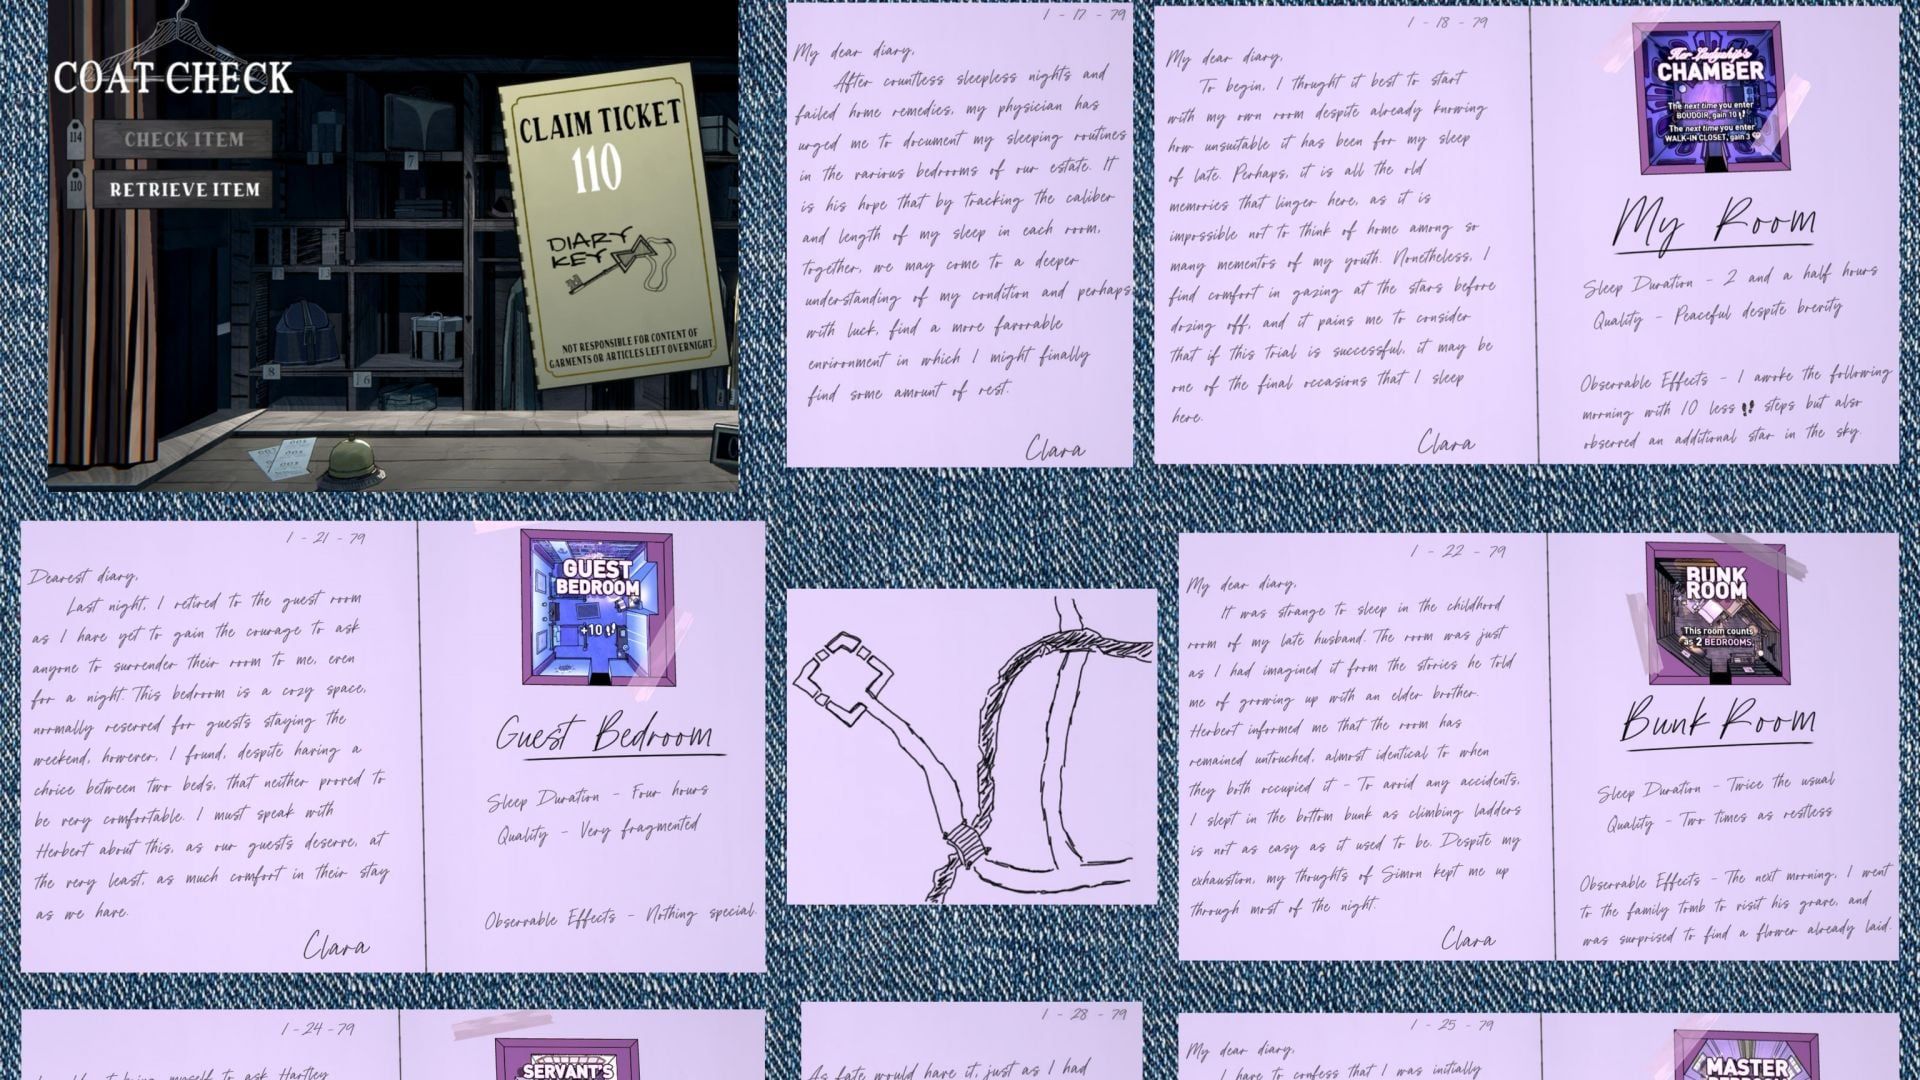 COAT CHECK
114
CHECK ITEM
110
RETRIEVE ITEM
CLAIM TICKET
110
DIARY
KEY
NOT RESPONSIBLE FOR CONTENT OF
GARMENTS OR ARTICLES LEFT OVERNIGHT
7
13
8
16
1 - 17 - 79
My dear diary,
After countless sleepless nights and
failed home remedies, my physician has
urged me to document my sleeping routines
in the various bedrooms of our estate. It
is his hope that by tracking the caliber
and length of my sleep in each room,
together, we may come to a deeper
understanding of my condition and perhaps,
with luck, find a more favorable
environment in which I might finally
find some amount of rest.
Clara
1 - 18 - 79
My dear diary,
To begin, I thought it best to start
with my own room despite already knowing
how unsuitable it has been for my sleep
of late. Perhaps, it is all the old
memories that linger here, as it is
impossible not to think of home among so
many mementos of my youth. Nonetheless, I
find comfort in gazing at the stars before
dozing off, and it pains me to consider
that if this trial is successful, it may be
one of the final occasions that I sleep
here.
Clara
Her Ladyship's
CHAMBER
The next time you enter
BOUDOIR, gain 10
The next time you enter
WALK-IN CLOSET, gain 3
My Room
Sleep Duration - 2 and a half hours
Quality - Peaceful despite brevity
Observable Effects - I awoke the following
morning with 10 less steps but also
observed an additional star in the sky
1 - 21 - 79
Dearest diary,
Last night, I retired to the guest room
as I have yet to gain the courage to ask
anyone to surrender their room to me, even
for a night. This bedroom is a cozy space,
normally reserved for guests staying the
weekend, however, I found, despite having a
choice between two beds, that neither proved to
be very comfortable. I must speak with
Herbert about this, as our guests deserve, at
the very least, as much comfort in their stay
as we have.
Clara
GUEST
BEDROOM
+10
Guest Bedroom
Sleep Duration - Four hours
Quality - Very fragmented
Observable Effects - Nothing special.
1 - 22 - 79
My dear diary,
It was strange to sleep in the childhood
room of my late husband. The room was just
as I had imagined it from the stories he told
me of growing up with an elder brother.
Herbert informed me that the room has
remained untouched, almost identical to when
they both occupied it - To avoid any accidents,
I slept in the bottom bunk as climbing ladders
is not as easy as it used to be. Despite my
exhaustion, my thoughts of Simon kept me up
through most of the night.
Clara
BUNK
ROOM
This room counts
as 2 BEDROOMS
Bunk Room
Sleep Duration - Twice the usual
Quality - Two times as restless
Observable Effects - The next morning, I went
to the family tomb to visit his grave, and
was surprised to find a flower already laid.
1 - 24 - 79
myself to ask Hartley
SERVANT'S
1 - 28 - 79
As fate would have it, just as I had
1 - 25 - 79
My dear diary,
I have to confess that I was initially
MASTER